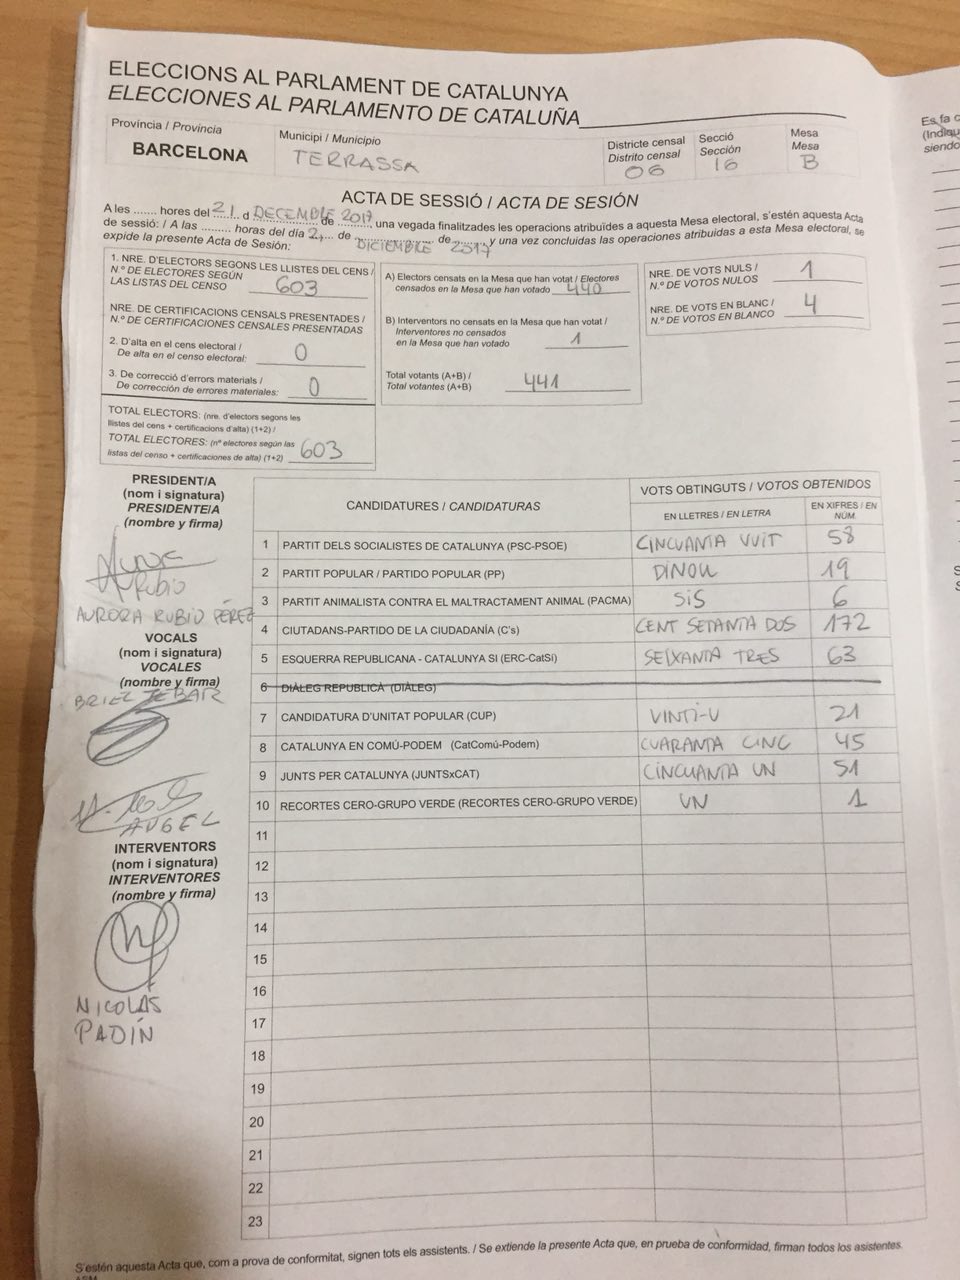 ELECCIONS AL PARLAMENT DE CATALUNYA
ELECCIONES AL PARLAMENTO DE CATALUÑA
Província / Provincia
BARCELONA
Municipi / Municipio
TERRASSA
Districte censal
Distrito censal
06
Secció
Sección
16
Mesa
Mesa
B
ACTA DE SESSIÓ / ACTA DE SESIÓN
A les ....... hores del 21. d DECEMBRE de 2017, una vegada finalitzades les operacions atribuïdes a aquesta Mesa electoral, s'estén aquesta Acta
de sessió: / A las ......... horas del día 2... de DICIEMBRE de 2017 y una vez concluidas las operaciones atribuidas a esta Mesa electoral, se
expide la presente Acta de Sesión:
1. NRE. D'ELECTORS SEGONS LES LLISTES DEL CENS /
N.º DE ELECTORES SEGÚN
LAS LISTAS DEL CENSO 603
NRE. DE CERTIFICACIONS CENSALS PRESENTADES /
N.º DE CERTIFICACIONES CENSALES PRESENTADAS
2. D'alta en el cens electoral /
De alta en el censo electoral: 0
3. De correcció d'errors materials /
De corrección de errores materiales: 0
TOTAL ELECTORS: (nre. d'electors segons les
llistes del cens + certificacions d'alta) (1+2) /
TOTAL ELECTORES: (nº electores según las
listas del censo + certificaciones de alta) (1+2) 603
A) Electors censats en la Mesa que han votat / Electores
censados en la Mesa que han votado 440
B) Interventors no censats en la Mesa que han votat /
Interventores no censados
en la Mesa que han votado 1
Total votants (A+B) /
Total votantes (A+B) 441
NRE. DE VOTS NULS /
N.º DE VOTOS NULOS 1
NRE. DE VOTS EN BLANC /
N.º DE VOTOS EN BLANCO 4
PRESIDENT/A
(nom i signatura)
PRESIDENTE/A
(nombre y firma)
Rubio
AURORA RUBIO PÉREZ
VOCALS
(nom i signatura)
VOCALES
(nombre y firma)
ANGEL
INTERVENTORS
(nom i signatura)
INTERVENTORES
(nombre y firma)
NICOLÁS
PADÍN
CANDIDATURES / CANDIDATURAS
VOTS OBTINGUTS / VOTOS OBTENIDOS
EN LLETRES / EN LETRA
EN XIFRES / EN
NÚM.
1 PARTIT DELS SOCIALISTES DE CATALUNYA (PSC-PSOE) CINCUANTA VUIT 58
2 PARTIT POPULAR / PARTIDO POPULAR (PP) DINOU 19
3 PARTIT ANIMALISTA CONTRA EL MALTRACTAMENT ANIMAL (PACMA) SIS 6
4 CIUTADANS-PARTIDO DE LA CIUDADANÍA (C's) CENT SETANTA DOS 172
5 ESQUERRA REPUBLICANA - CATALUNYA SI (ERC-CatSí) SEIXANTA TRES 63
6 DIÀLEG REPUBLICÀ (DIÀLEG)
7 CANDIDATURA D'UNITAT POPULAR (CUP) VINTI-U 21
8 CATALUNYA EN COMÚ-PODEM (CatComú-Podem) CUARANTA CINC 45
9 JUNTS PER CATALUNYA (JUNTSxCAT) CINCUANTA UN 51
10 RECORTES CERO-GRUPO VERDE (RECORTES CERO-GRUPO VERDE) UN 1
11
12
13
14
15
16
17
18
19
20
21
22
23
S'estén aquesta Acta que, com a prova de conformitat, signen tots els assistents. / Se extiende la presente Acta que, en prueba de conformidad, firman todos los asistentes.
Es fa c
(Indiqu
siendo